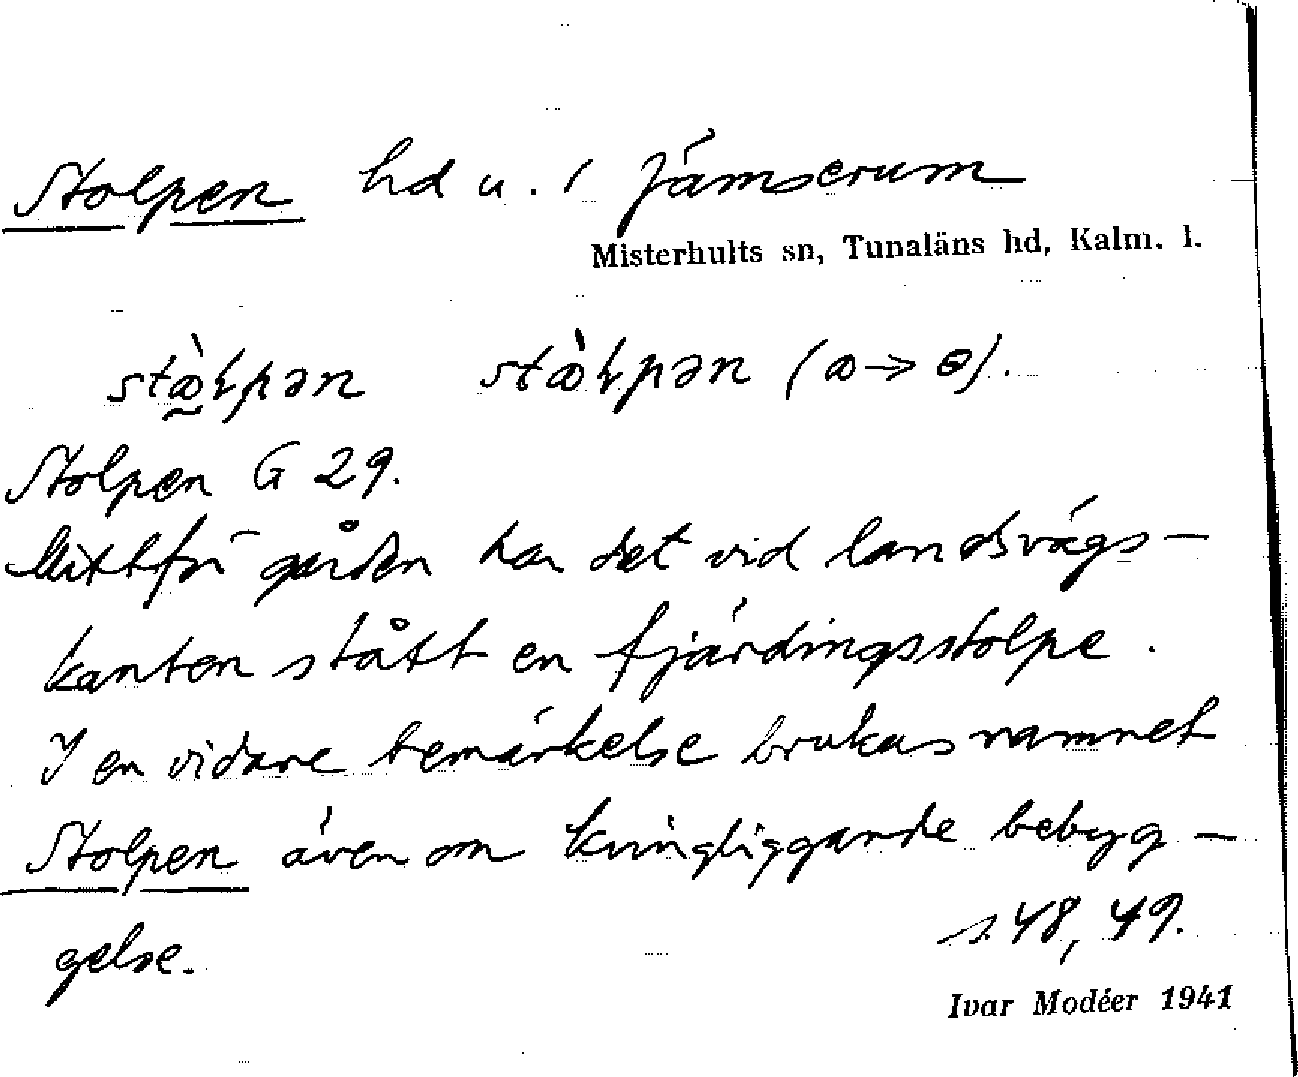 Stolpen hd u. i Jämserum
Misterhults sn, Tunaläns hd, Kalm. l.
Stolpen G 29.
Mittför gården har det vid landsvägs-
kanten stått en fjärdingsstolpe.
I en vidare bemärkelse brukas namnet
Stolpen även om kringliggande bebyg-
gelse.
s 48, 49.
Ivar Modéer 1941